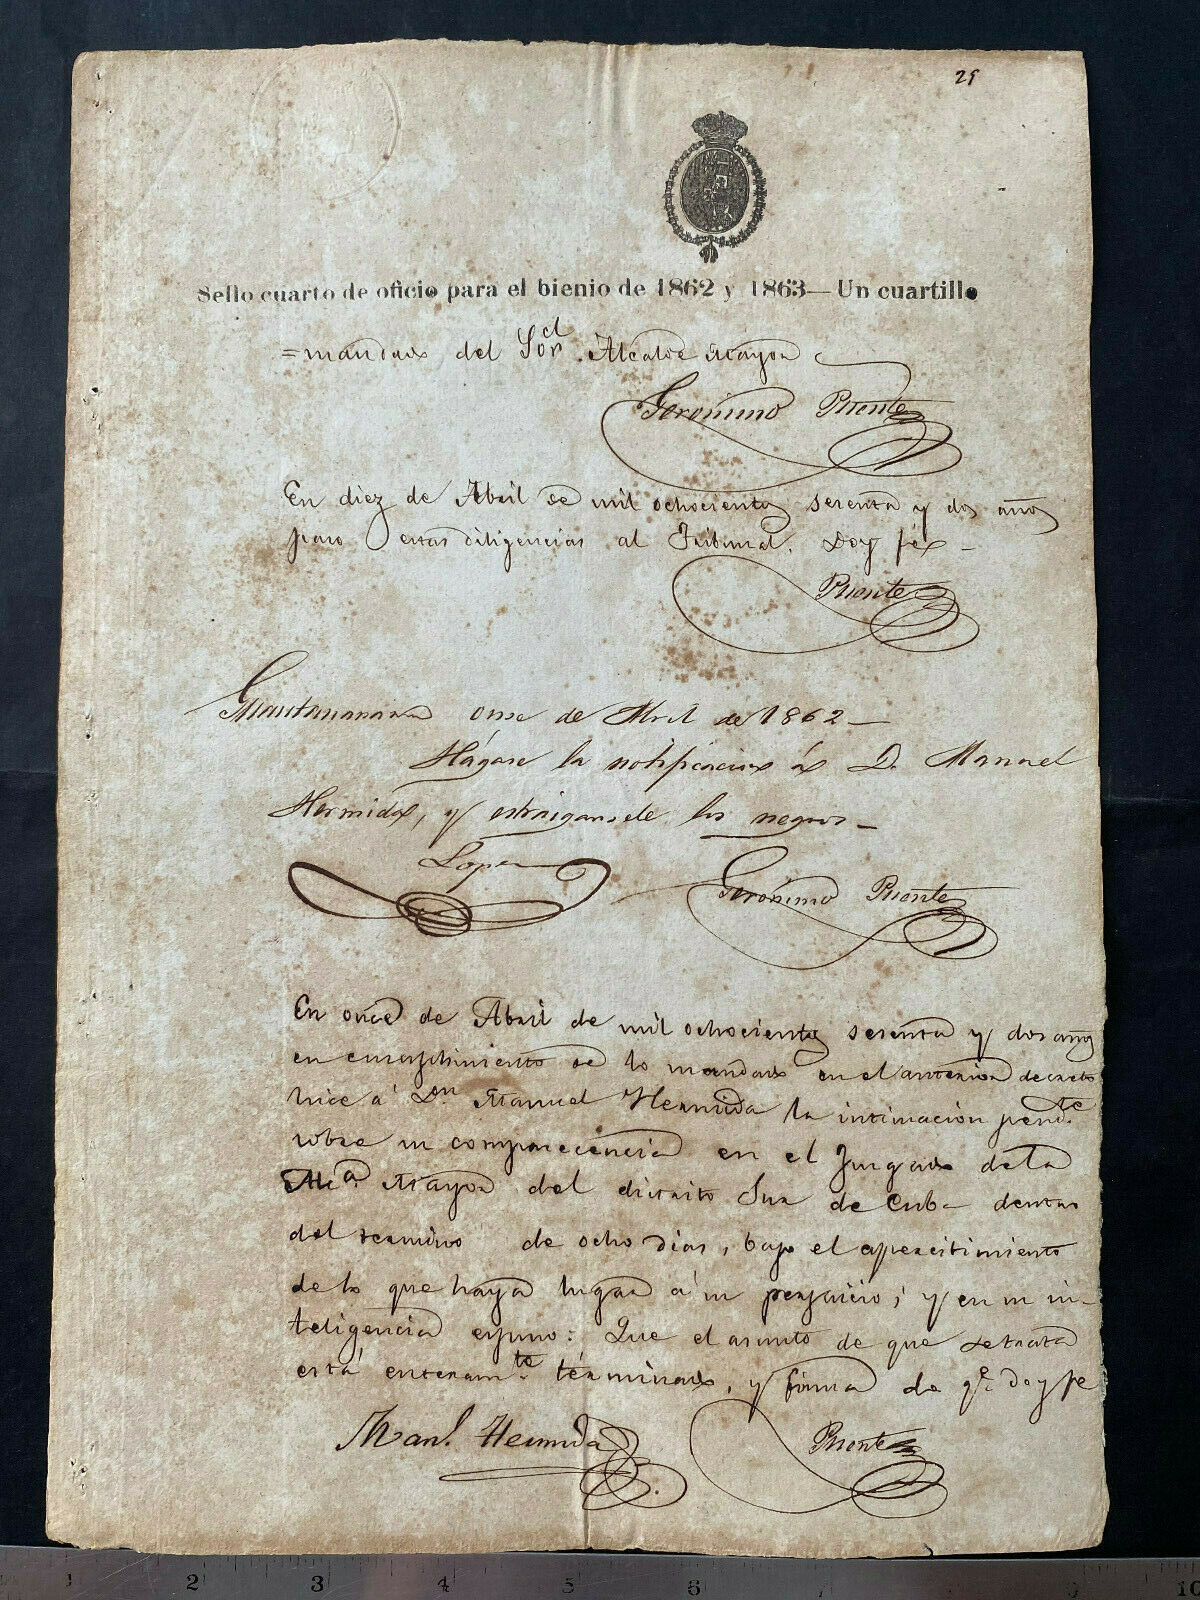 25
Sello cuarto de oficio para el bienio de 1862 y 1863— Un cuartillo
=mandado del Sor. Alcalde mayor
Gerónimo Puente
En diez de Abril de mil ochocientos sesenta y dos años
paso estas diligencias al Tribunal. Doy fé—
Puente
Guantanamo onse de Abril de 1862—
Hágase la notificacion á D. Manuel
Hermida, y estraiganse los negros—
Lopez
Gerónimo Puente
En once de Abril de mil ochocientos sesenta y dos años
en cumplimiento de lo mandado en el anterior decreto
hice á Dn. Manuel Hermida la intimacion pendte.
sobre su comparecencia en el Juzgado de la
Alca. Mayor del distrito Sur de Cuba dentro
del termino de ocho dias, bajo el apercibimiento
de lo que haya lugar á su perjuicio; y en su in-
teligencia espuso: Que el asunto de que se trata
está enteramte. términado, y firma de qe. doy fe
Manl. Hermida
Puente
1 2 3 4 5 6 7 8 9 10